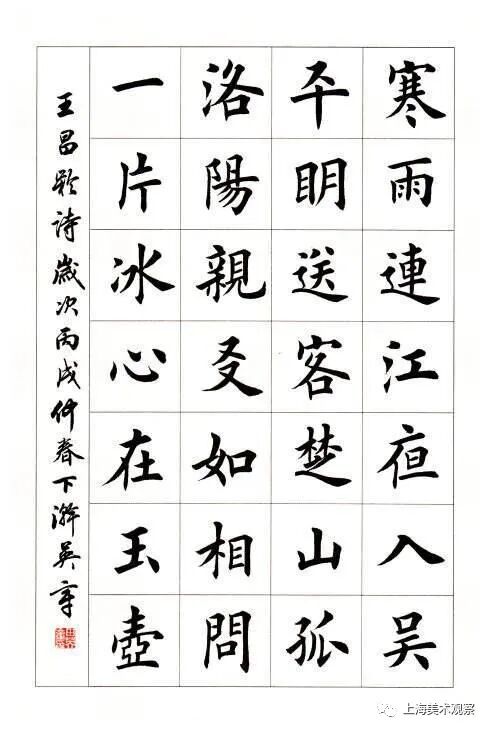 寒雨連江夜入吴
平明送客楚山孤
洛陽親友如相問
一片冰心在玉壺
王昌齡詩歲次丙戌仲春下澣吴
上海美术观察